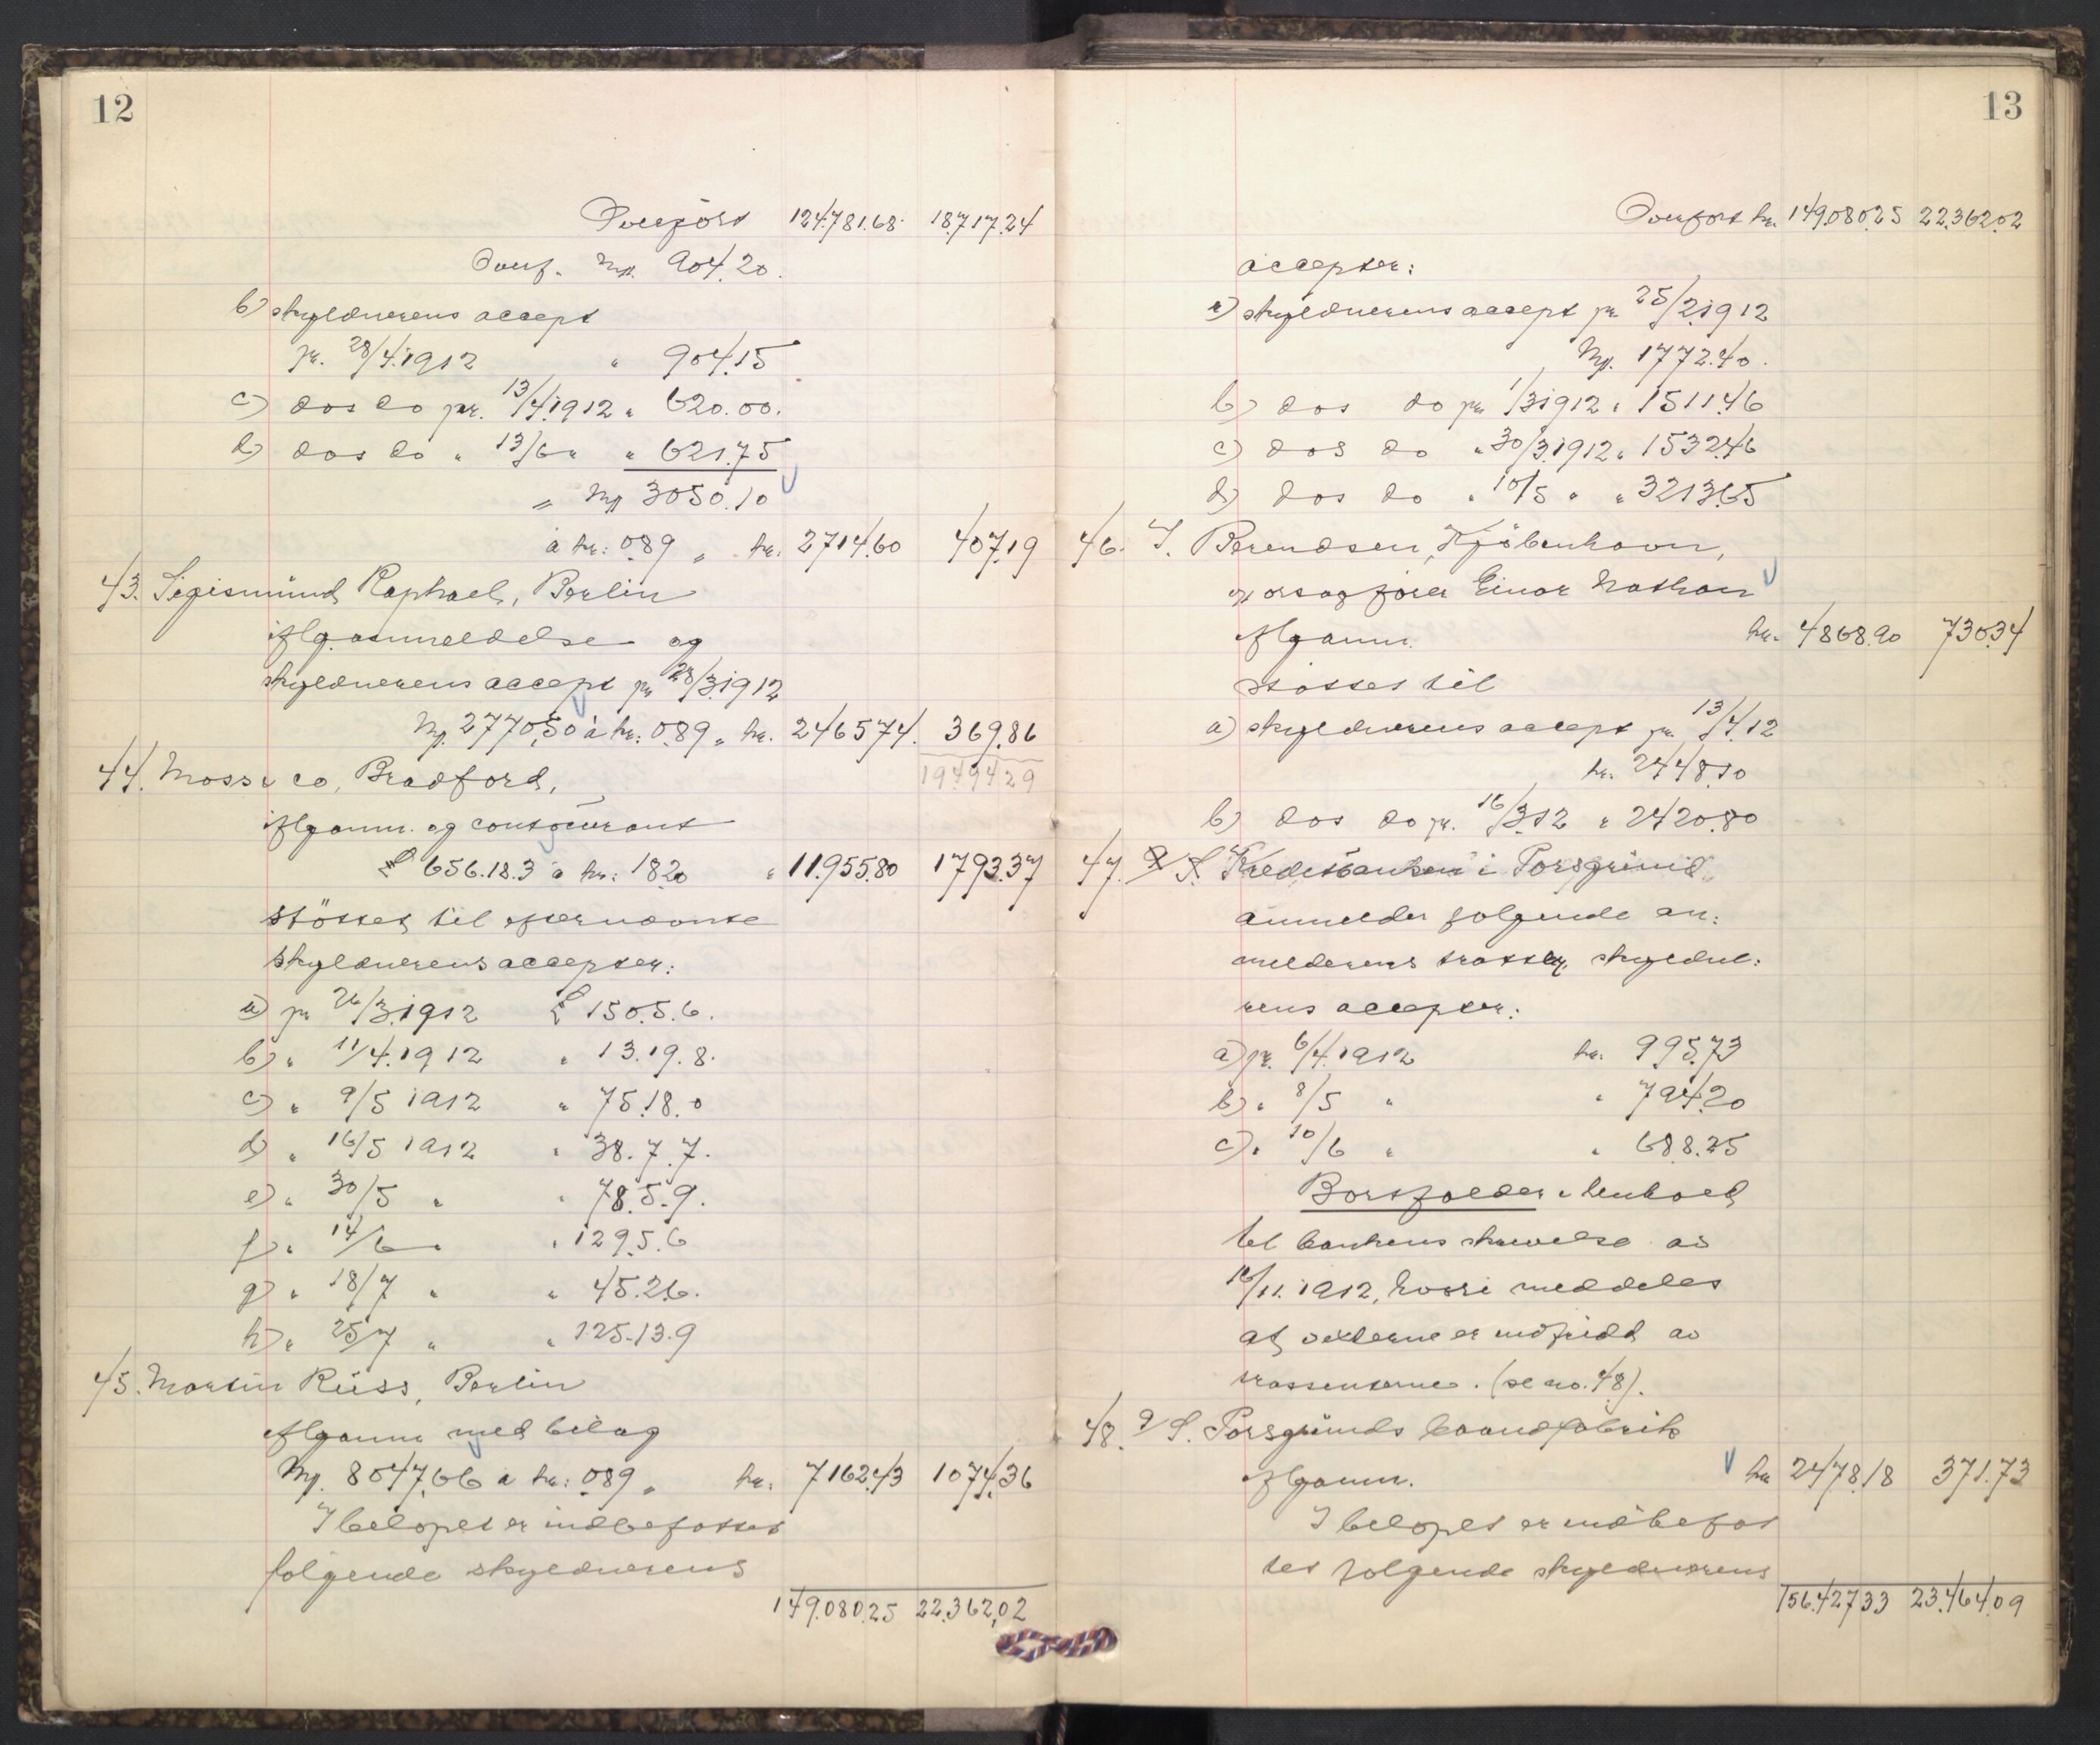 12
Overført 124.781.68. 18.717.24
Overf. Mk. 904.20.
b) skyldnerens accept
pr. 28/4.1912 " 904.15
c) dos do pr. 13/4.1912 " 620.00.
d) dos do " 13/6 " " 621.75
= Mk 3050.10
à kr: 0.89 " kr. 2714.60 407.19
43. Sigismund Raphael, Berlin
iflg. anmeldelse og
skyldnerens accept pr 28/3.1912
Mk. 2770,50 à kr: 0.89 " kr. 2465.74. 369.86
19494 29
44. Moss & co, Bradford,
iflg anm. og contocurant
£ 656.18.3 à kr: 18.20 " 11.955.80 1793.37
støttet til efternævnte
skyldnerens accepter:
a) pr 26/3.1912 £ 150.5.6.
b) " 11/4.1912 " 13.19.8.
c) " 9/5 1912 " 75.18.0
d) " 16/5 1912 " 38.7.7.
e) " 30/5 " " 78.5.9.
f) " 14/6 " " 129.5.6
g) " 18/7 " " 45.2.6.
h) " 25/7 " " 125.13.9
45. Martin Rüss, Berlin
iflg anm med bilag
Mk. 8047,66 à kr: 0.89 " kr. 7162.43 1074.36
I beløpet er indbefattet
følgende skyldnerens
149.080.25 22.362,02
13
Overført kr. 149.080.25 22.362.02
accepter:
a) skyldnerens accept pr 25/2.1912
Mk. 1772.40.
b) dos do pr 1/3 1912 " 1511.46
c) dos do " 30/3.1912 " 1532.46
d) dos do " 10/5 " " 3213.65
46. I. Berendsen, Kjøbenhavn,
v/ orsagfører Einar Nathan
iflg anm. kr. 4868.90 730.34
støttet til
a) skyldnerens accept pr. 13/4.12
kr. 2448.10
b) dos do pr. 16/3.12 " 2420.80
47. A/S. Kreditbanken i Porsgrund,
anmelder følgende an:
melderens tratter, skyldne:
rens accepter:
a) pr. 6/4.1912 kr. 995.73
b) " 8/5 " " 794.20
c) " 10/6 " " 688.25
Bortfalder i henhold
til bankens skrivelse av
16/11. 1912, hvori meddeles
at vexlerne er indfridd av
trassenterne. (se no. 48).
48. A/S. Porsgrunds baandfabrik
iflg anm. kr 2478.18 371.73
I beløpet er indbefat
tet følgende skyldnerens
156.427.33 23.464.09